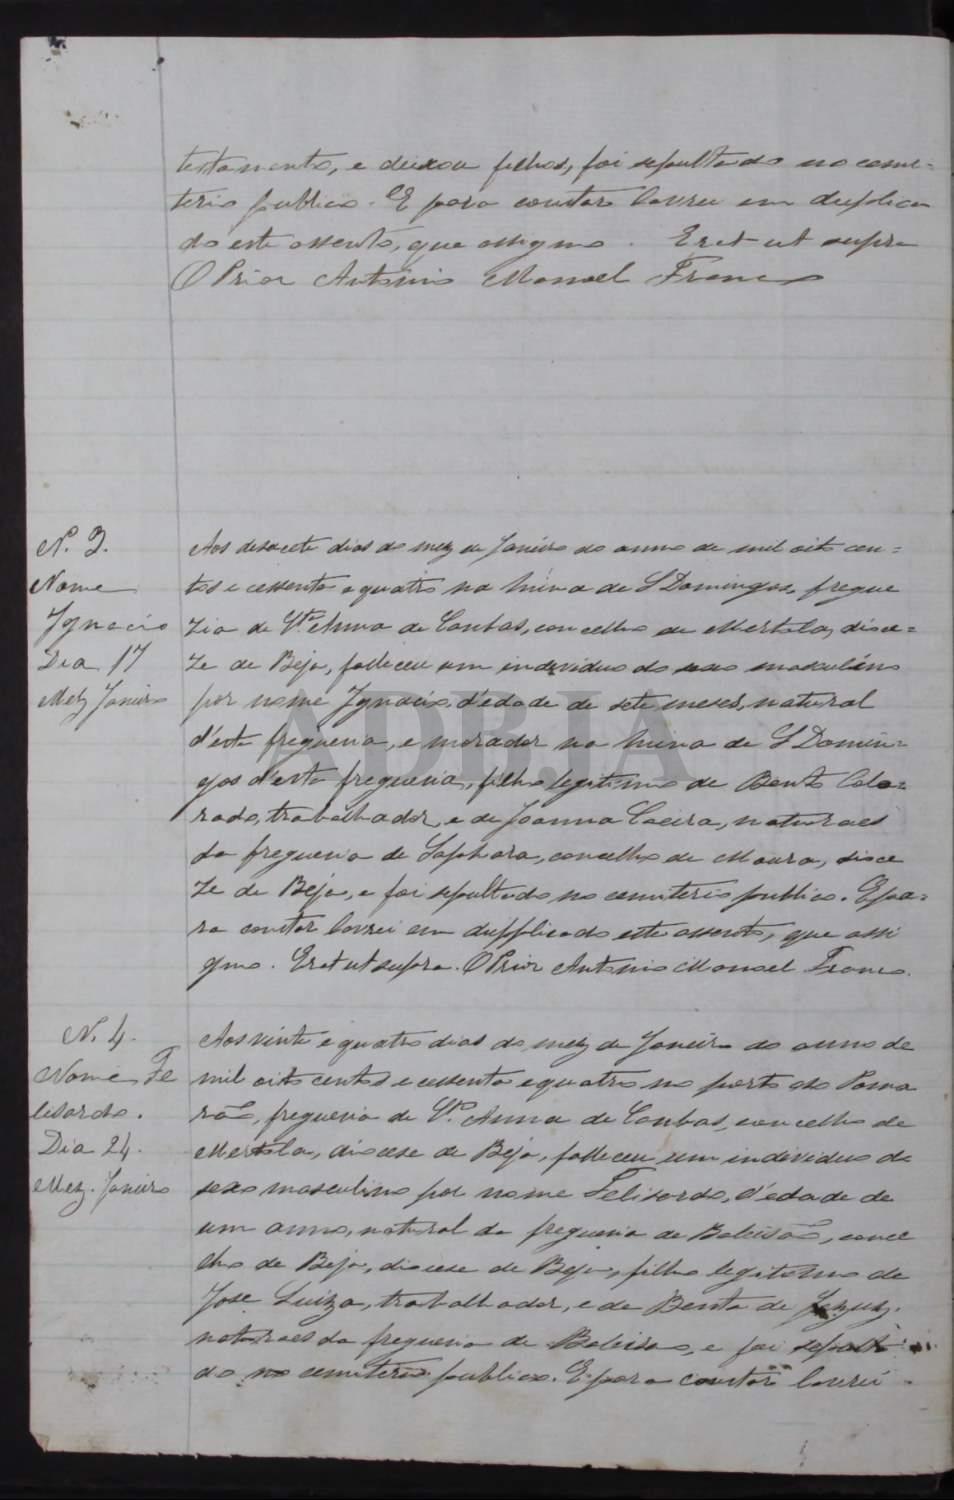 testamento, e deixou filhos, foi sepultado no cemi-
terio publico. E para constar lavrei em duplica
do este assento, que assigno. Erat ut supra
O Prior Antonio Manoel Franco
N. 3.
Nome
Ignacio
Dia 17
Mez Janeiro
Aos desacete dias do mez de Janeiro do anno de mil oito cen-
tos e cessenta e quatro na Mina de S Domingos, fregue
zia de Sta. Anna de Cambas, concelho de Mertola, dioce-
ze de Beja, falleceu um individuo do sexo masculino
por nome Ignacio, d'edade de sete meses, natural
d'esta freguezia, e morador na Mina de S Domin-
gos d'esta freguezia, filho legitimo de Bento
trabalhador, e de Joanna Caeira, naturaes
da freguezia de Saphara, concelho de Moura, dioce
ze de Beja, e foi sepultado no cemiterio publico. E pa-
ra constar lavrei em dupplicado este assento, que assi
gno. Erat ut supra. O Prior Antonio Manoel Franco.
N. 4.
Nome Fe
lisardo.
Dia 24.
Mez. Janeiro
Aos vinte e quatro dias do mez de Janeiro do anno de
mil oito centos e cessenta e quatro no porto do Poma
rão, freguezia de Sta. Anna de Cambas, concelho de
Mertola, diocese de Beja, falleceu um individuo do
sexo masculino por nome Felisardo, d'edade de
um anno, natural da freguezia de Baleisão, conce
lho de Beja, diocese de Beja, filho legitimo de
Jose Luiza, trabalhador, e de Benta de Jezuz,
naturaes da freguezia de Baleisão, e foi sepulta
do no cemiterio publico. E para constar lavrei
ADBJA